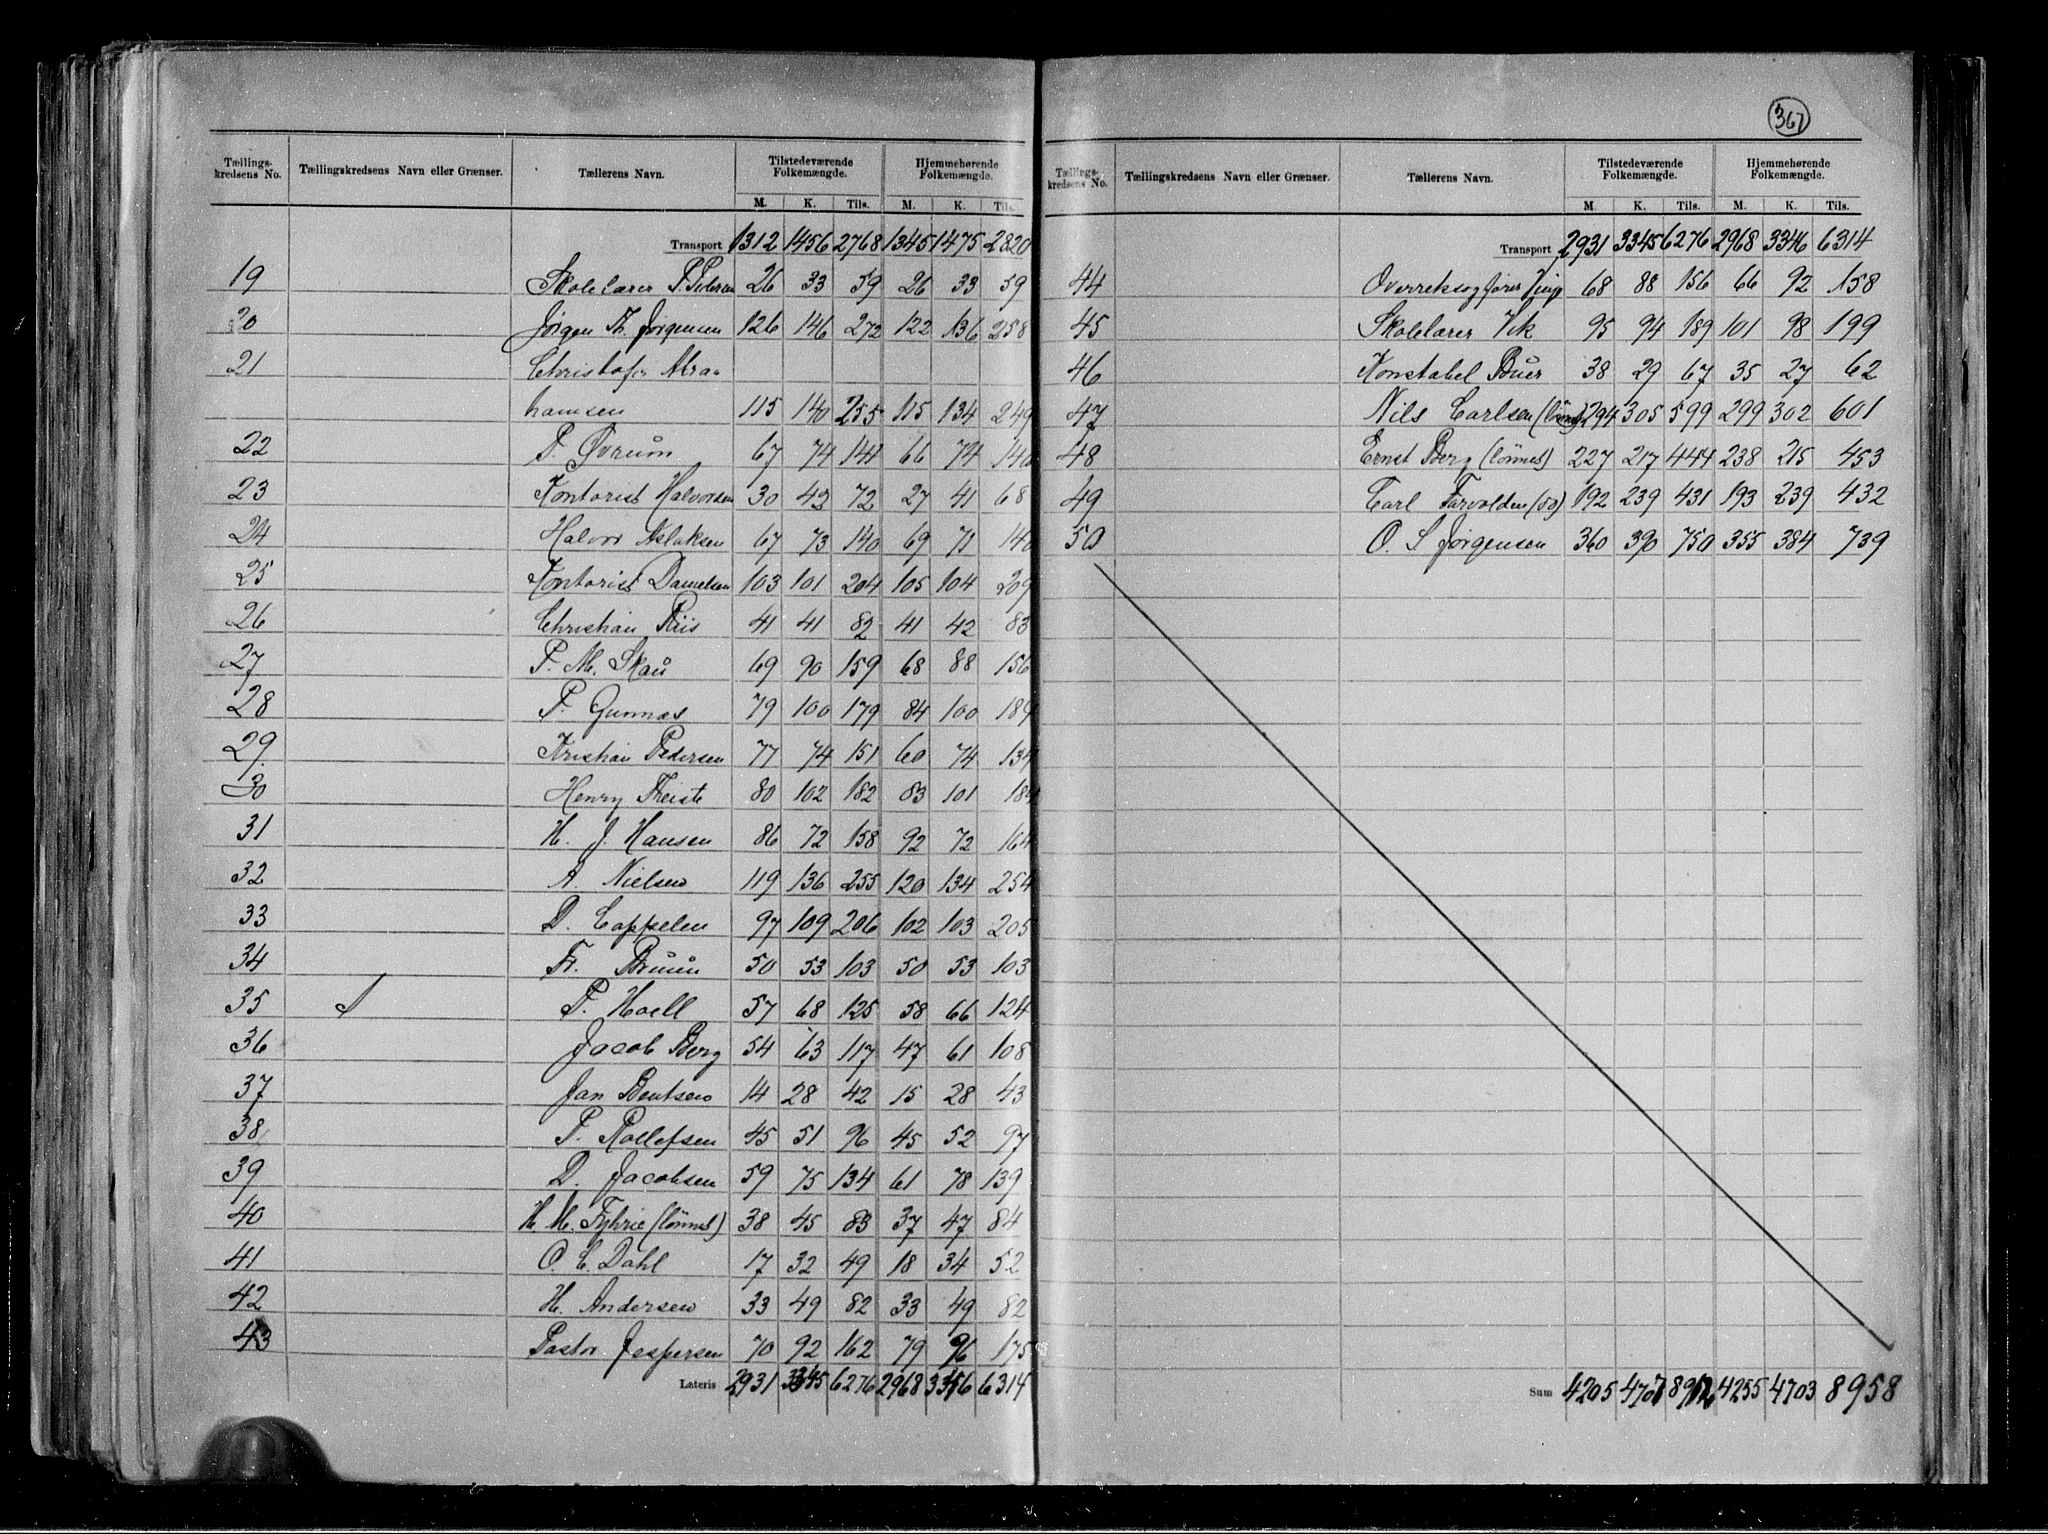 367
Tællings-kredsens No. Tællingskredsens Navn eller Grænser. Tællerens Navn. Tilstedeværende Folkemængde. Hjemmehørende Folkemængde.
M. K. Tils. M. K. Tils.
Transport 1312 1456 2768 1345 1475 2820
19 Skolelærer P Pedersen 26 33 59 26 33 59
20 Jørgen Th. Jørgensen 126 146 272 122 136 258
21 Christofer Abra-
hamsen 115 140 255 115 134 249
22 P. Øvrum 67 74 141 66 74 140
23 Kontorist Halvorsen 30 42 72 27 41 68
24 Halvor Aslaksen 67 73 140 69 71 140
25 Kontorist Danielsen 103 101 204 105 104 209
26 Christian Riis 41 41 82 41 42 83
27 P. M. Skau 69 90 159 68 88 156
28 P. Gunnæs 79 100 179 84 100 184
29. Kristian Pedersen 77 74 151 60 74 134
30 Henry 80 102 182 83 101 184
31 H. J. Hansen 86 72 158 92 72 164
32 A. Nielsen 119 136 255 120 134 254
33 D. Cappelen 97 109 206 102 103 205
34 Fr. Bruun 50 53 103 50 53 103
35 P. Hoell 57 68 125 58 66 124
36 Jacob Berg 54 63 117 47 61 108
37 Jan Bentsen 14 28 42 15 28 43
38 P. Rollefsen 45 51 96 45 52 97
39 D. Jacobsen 59 75 134 61 78 139
40 H. M. (lønnet) 38 45 83 37 47 84
41 O. C. Dahl 17 32 49 18 34 52
42 H. Andersen 33 49 82 33 49 82
43 Pastor Jespersen 70 92 162 79 96 175
Lateris 2931 3345 6276 2968 3346 6314
Tællings-kredsens No. Tællingskredsens Navn eller Grænser. Tællerens Navn. Tilstedeværende Folkemængde. Hjemmehørende Folkemængde.
M. K. Tils. M. K. Tils.
Transport 2931 3345 6276 2968 3346 6314
44 Overretssagfører 68 88 156 66 92 158
45 Skolelærer Vik 95 94 189 101 98 199
46 Konstabel Buer 38 29 67 35 27 62
47 Nils Carlsen (lønnet) 294 305 599 299 302 601
48 Ernst Berg (lønnet) 227 217 444 238 215 453
49 Carl Farvolden (do) 192 239 431 193 239 432
50 O. S Jørgensen 360 390 750 355 384 739
Sum 4205 4707 8912 4255 4703 8958